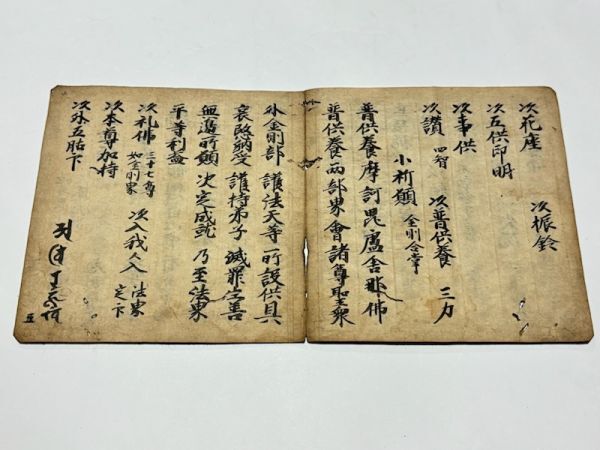 次花座 次振鈴
次五供印明
次事供
次讃 四智 次普供養 三力
小祈願 金剛合掌
普供養摩訶毘盧舎那佛
普供養両部界會諸尊聖衆
外金剛部 護法天等 所設供具
哀愍納受 護持弟子 滅罪生善
無邊所願 決定成就 乃至法界
平等利益
次礼佛 三十七尊 如金剛界 次入我我入 法界定下
次本尊加持
次外五胋下
五